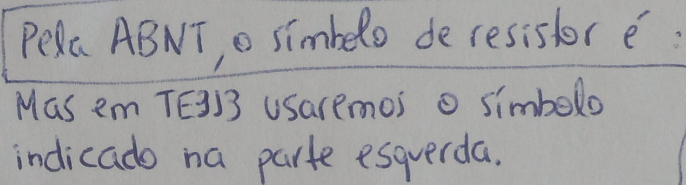 Pela ABNT, o símbolo de resistor é:
Mas em TE313 usaremos o símbolo
indicado na parte esquerda.